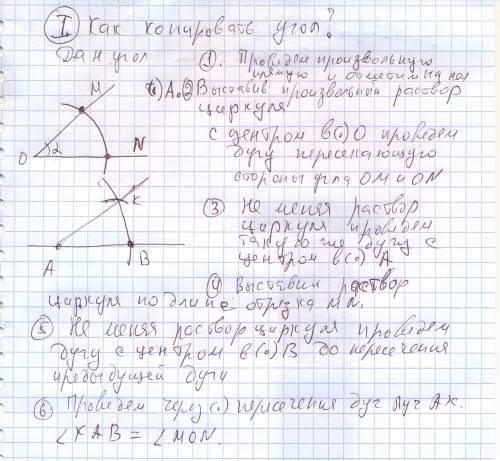 I. Как копировать угол?
Дан. угол
① Проведем произвольную
прямую и отметим на ней
(·) A. ② Выставив произвольный раствор
циркуля
с центром в (·) O проведем
дугу пересекающую
стороны угла OM и ON
M
O
α
N
③ Не меняя раствор
циркуля проведем
такую же дугу с
центром в (·) A
K
A
B
④ Выставим раствор
циркуля по длине отрезка MN.
⑤ Не меняя раствор циркуля проведем
дугу с центром в (·) B до пересечения
предыдущей дуги
⑥ Проведем через (·) пересечения дуг луч AK.
∠KAB = ∠MON.